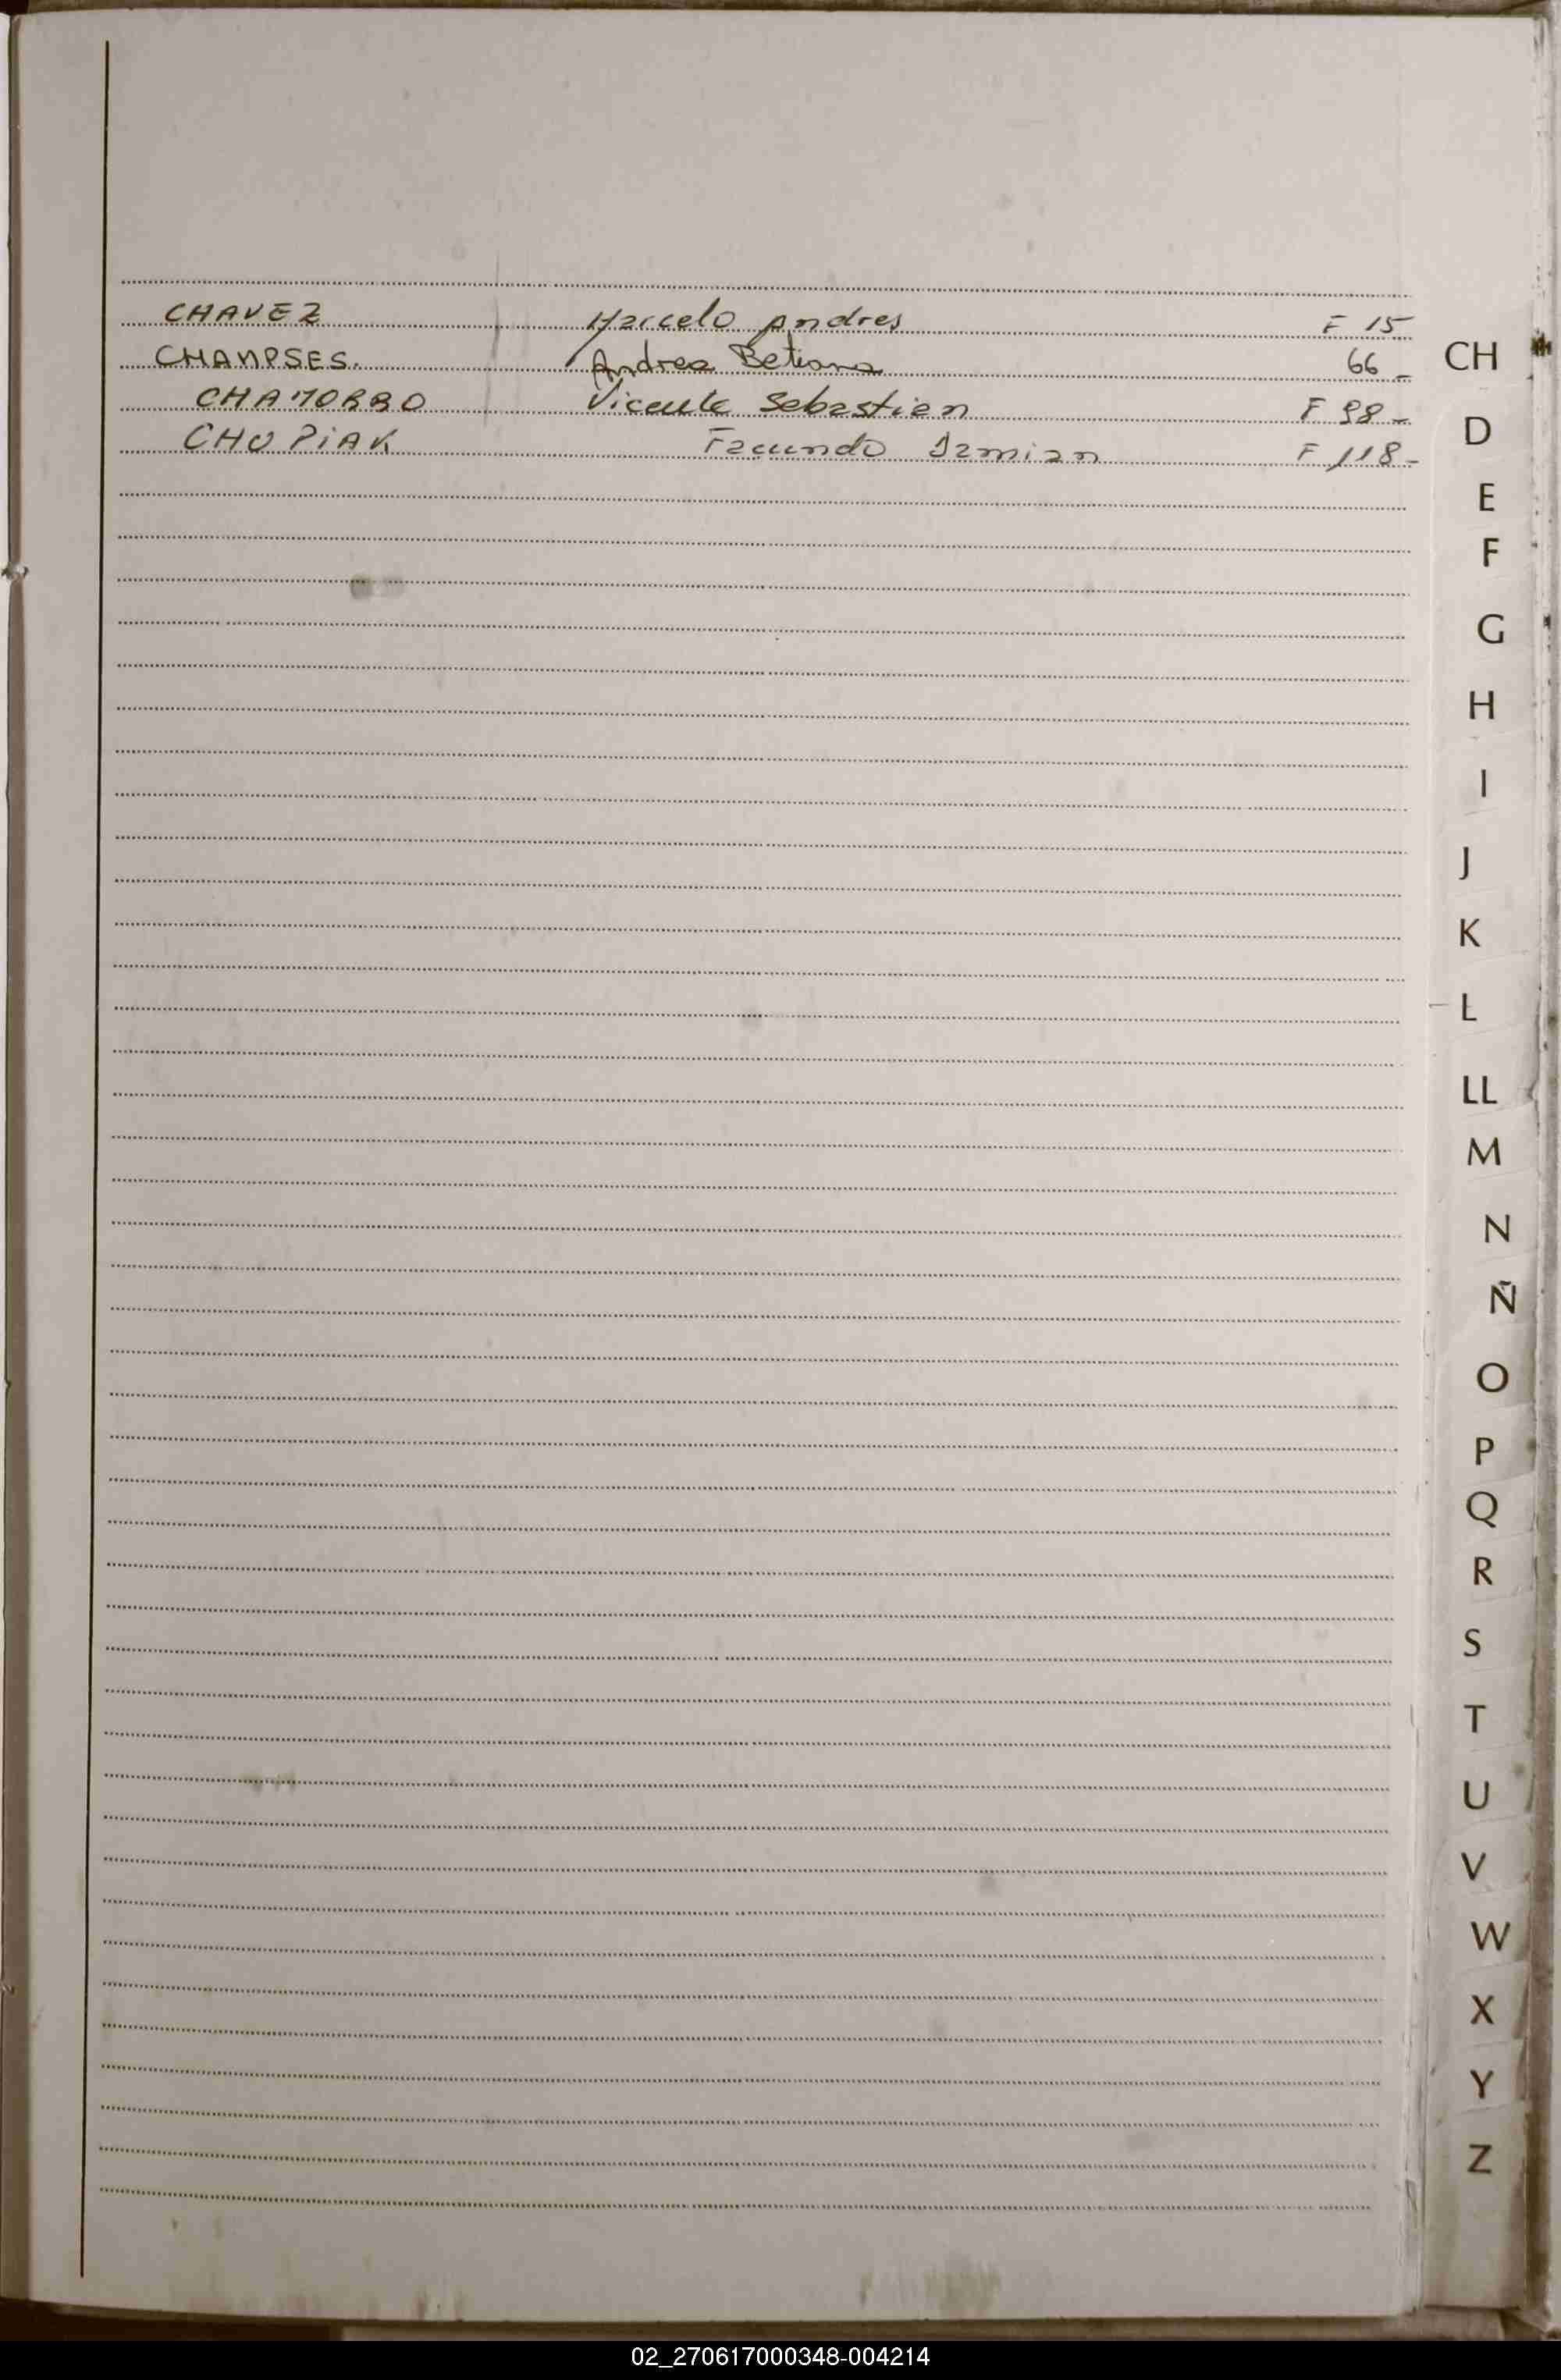 CHAVEZ Marcelo Andres F 15
CHAMPSES. Andrea Betiana 66 -
CHAMORRO Vicente Sebastian F 98 -
CHUPIAK Facundo Damian F 118 -
CH
D
E
F
G
H
I
J
K
L
LL
M
N
Ñ
O
P
Q
R
S
T
U
V
W
X
Y
Z
02_270617000348-004214